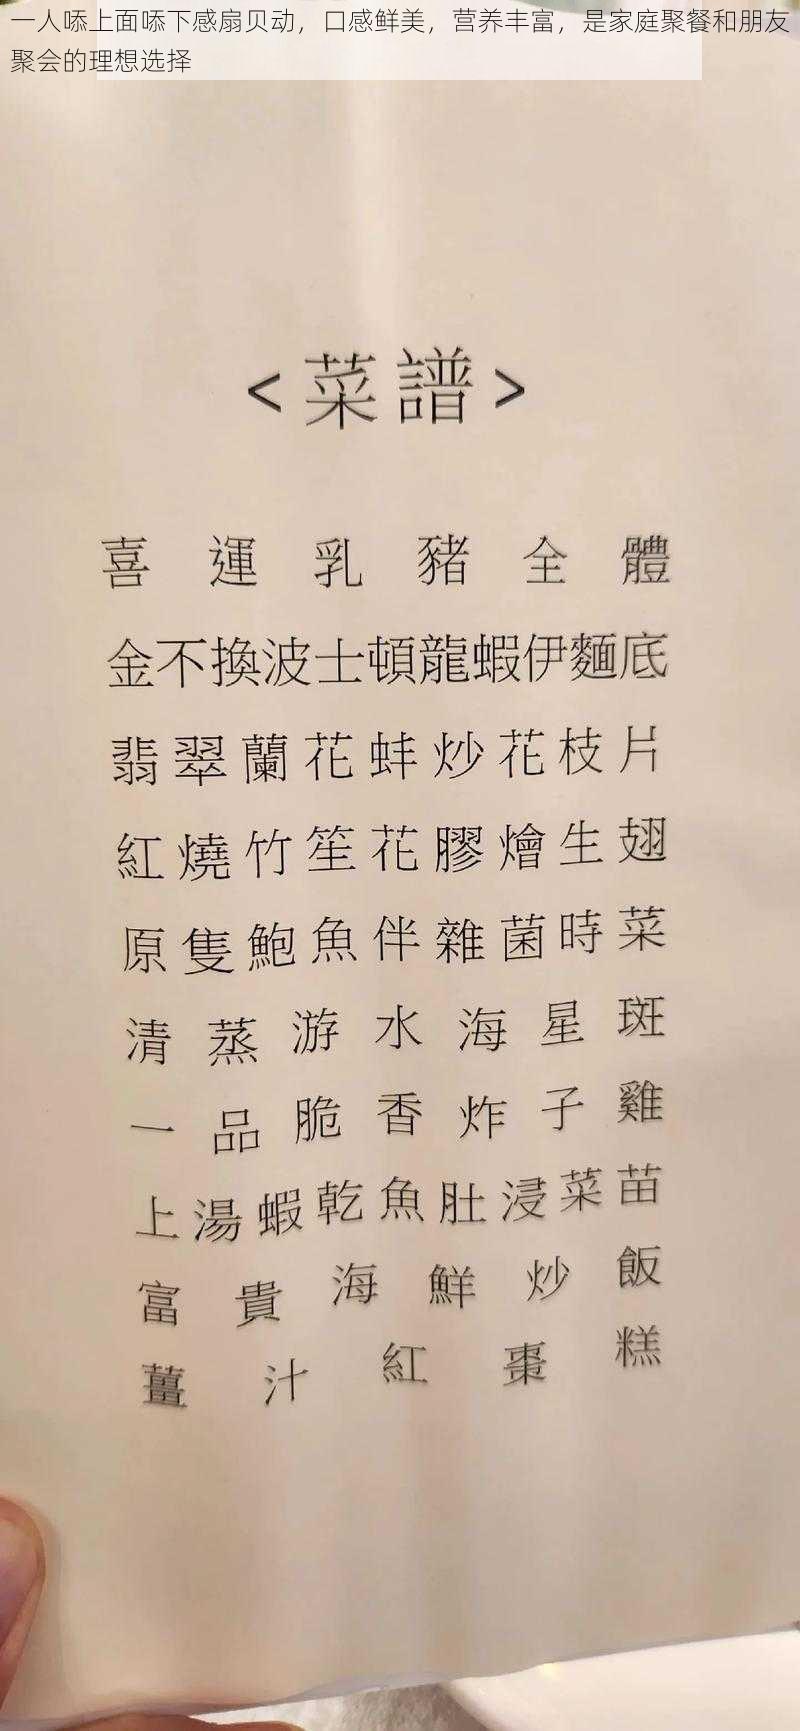 一人㖭上面㖭下感扇贝动，口感鲜美，营养丰富，是家庭聚餐和朋友
聚会的理想选择
<菜譜>
喜運乳豬全體
金不換波士頓龍蝦伊麵底
翡翠蘭花蚌炒花枝片
紅燒竹笙花膠燴生翅
原隻鮑魚伴雜菌時菜
清蒸游水海星斑
一品脆香炸子雞
上湯蝦乾魚肚浸菜苗
富貴海鮮炒飯
薑汁紅棗糕